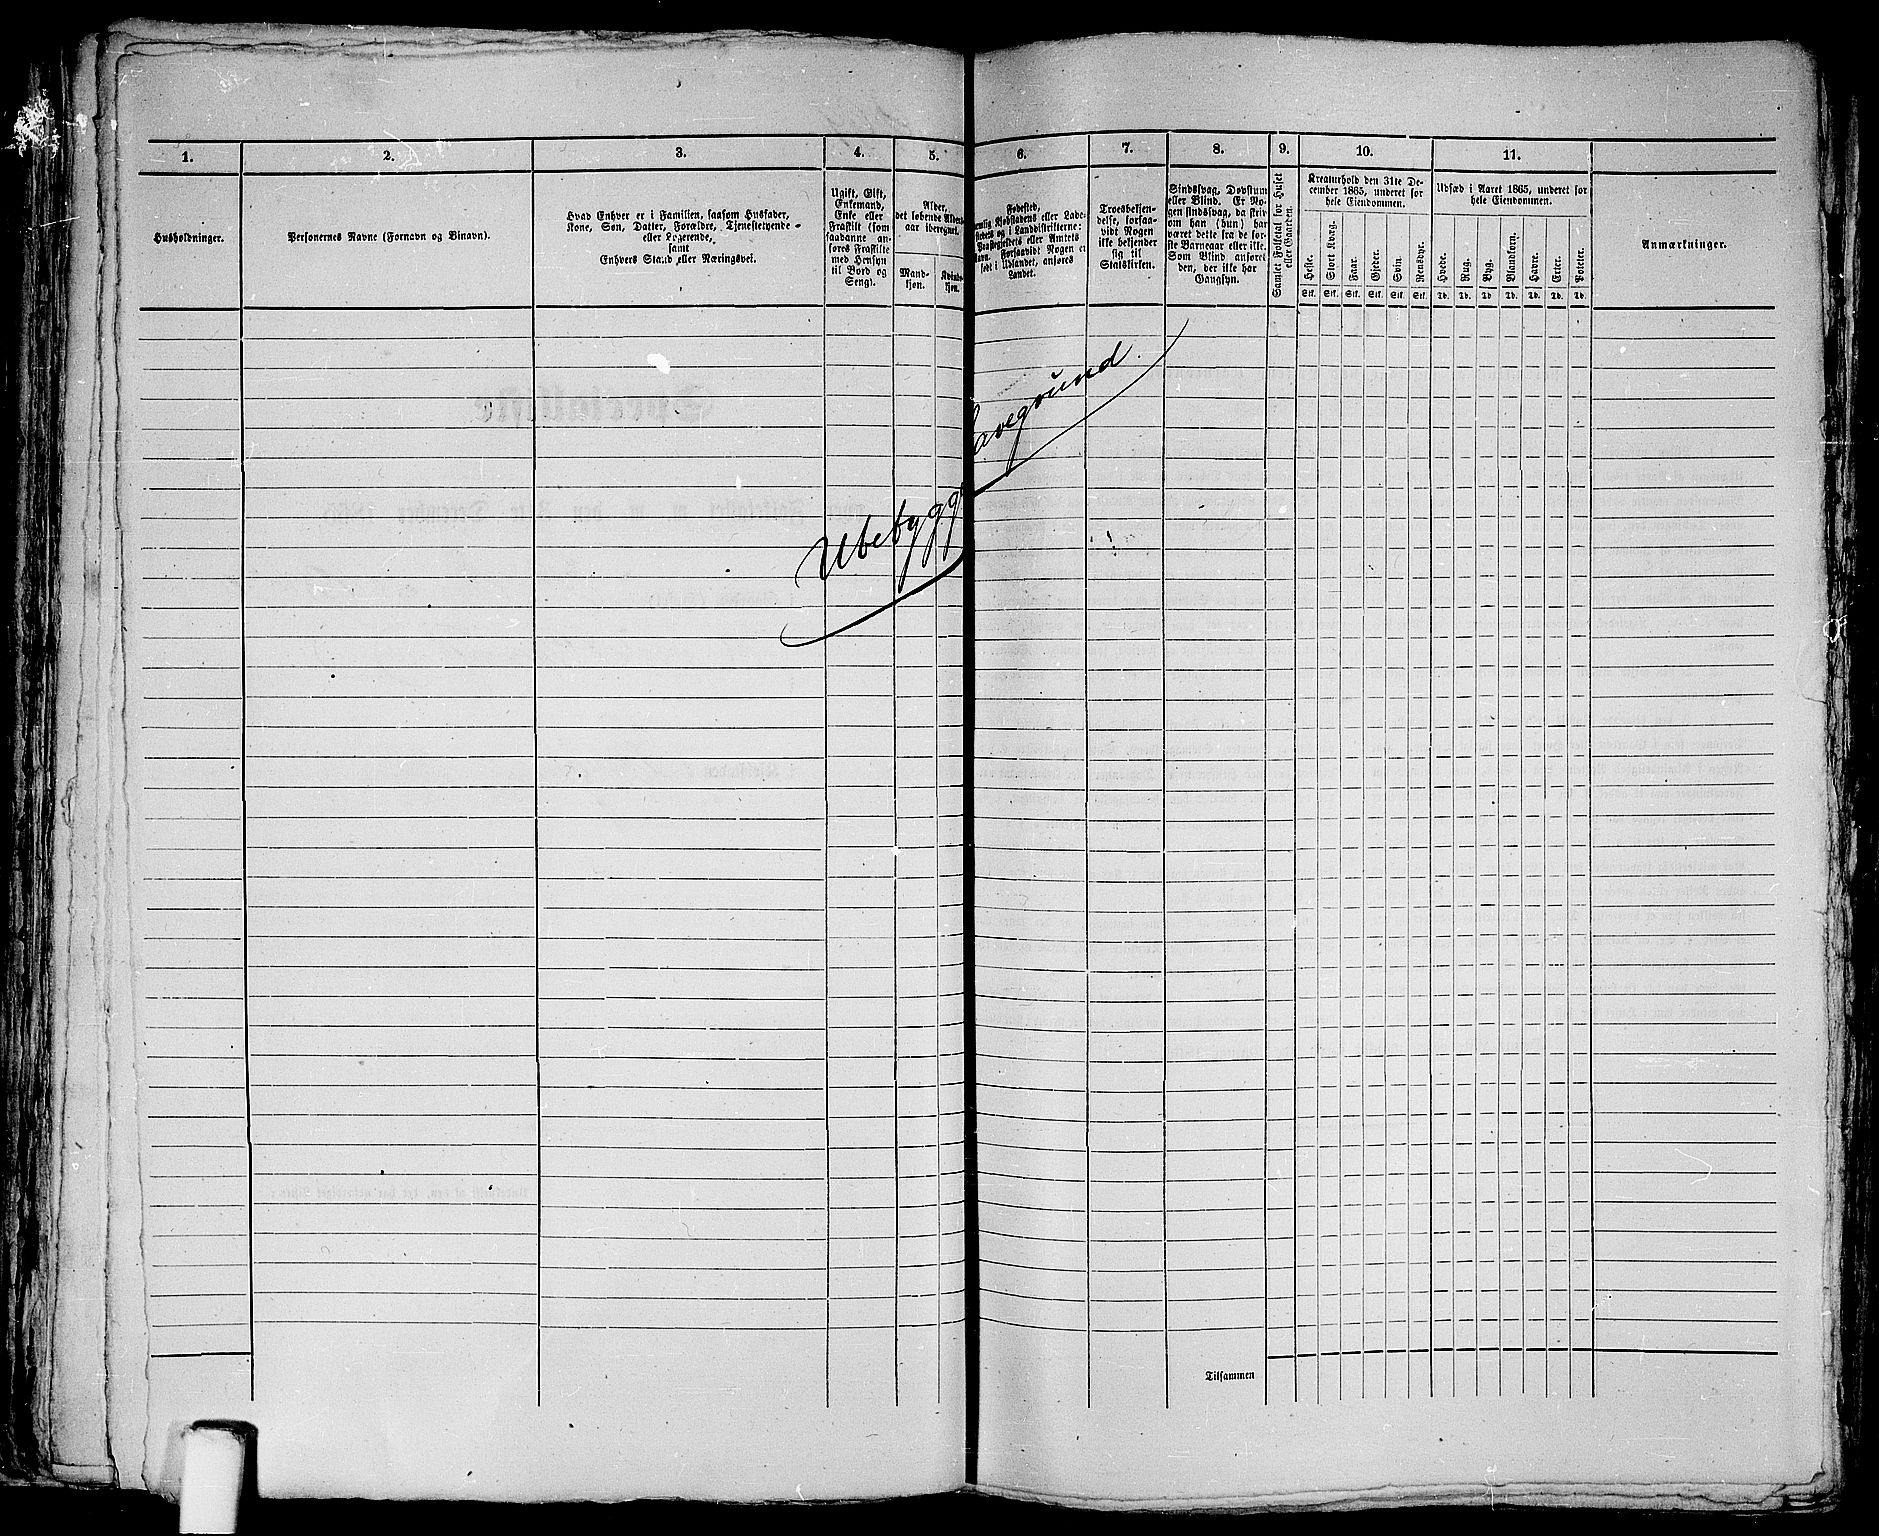 1.
2.
3.
4.
5.
6.
7.
8.
9.
10.
11.
Husholdninger.
Personernes Navne (Fornavn og Binavn).
Hvad Enhver er i Familien, saasom Husfader,
Kone, Søn, Datter, Forældre, Tjenestetyende
eller Logerende,
samt
Enhvers Stand eller Næringsvei.
Ugift, Gift,
Enkemand,
Enke eller
Fraskilt (som
saadanne an-
føres Fraskilte
med Hensyn
til Bord og
Seng).
Alder,
det løbende Alders-
aar iberegnet.
Mand-
kjøn.
Kvinde-
kjøn.
Fødested,
Kjøbstadens eller Lade-
stedets og i Landdistrikterne:
Præstegjeldets eller Amtets
Navn. Forsaavidt Nogen er
født i Udlandet, anføres
Landet.
Troesbekjen-
delse, forsaa-
vidt Nogen
ikke bekjender
sig til
Statskirken.
Sindssvag, Døvstum
eller Blind. Er No-
gen sindssvag, da skriv
om han (hun) har
været dette fra de før-
ste Barneaar eller ikke.
Som Blind anføres
den, der ikke har
Gangsyn.
Samlet Folketal for Huset
eller Gaarden.
Kreaturhold den 31te De-
cember 1865, underet for
hele Eiendommen.
Heste.
Stort Kvæg.
Faar.
Gjeder.
Svin.
Rensdyr.
Stk. Stk. Stk. Stk. Stk. Stk.
Udsæd i Aaret 1865, underet for
hele Eiendommen.
Hvede.
Rug.
Byg.
Blandkorn.
Havre.
Erter.
Poteter.
Td. Td. Td. Td. Td. Td. Td.
Anmærkninger.
Ubebygg
avegrund.
Tilsammen